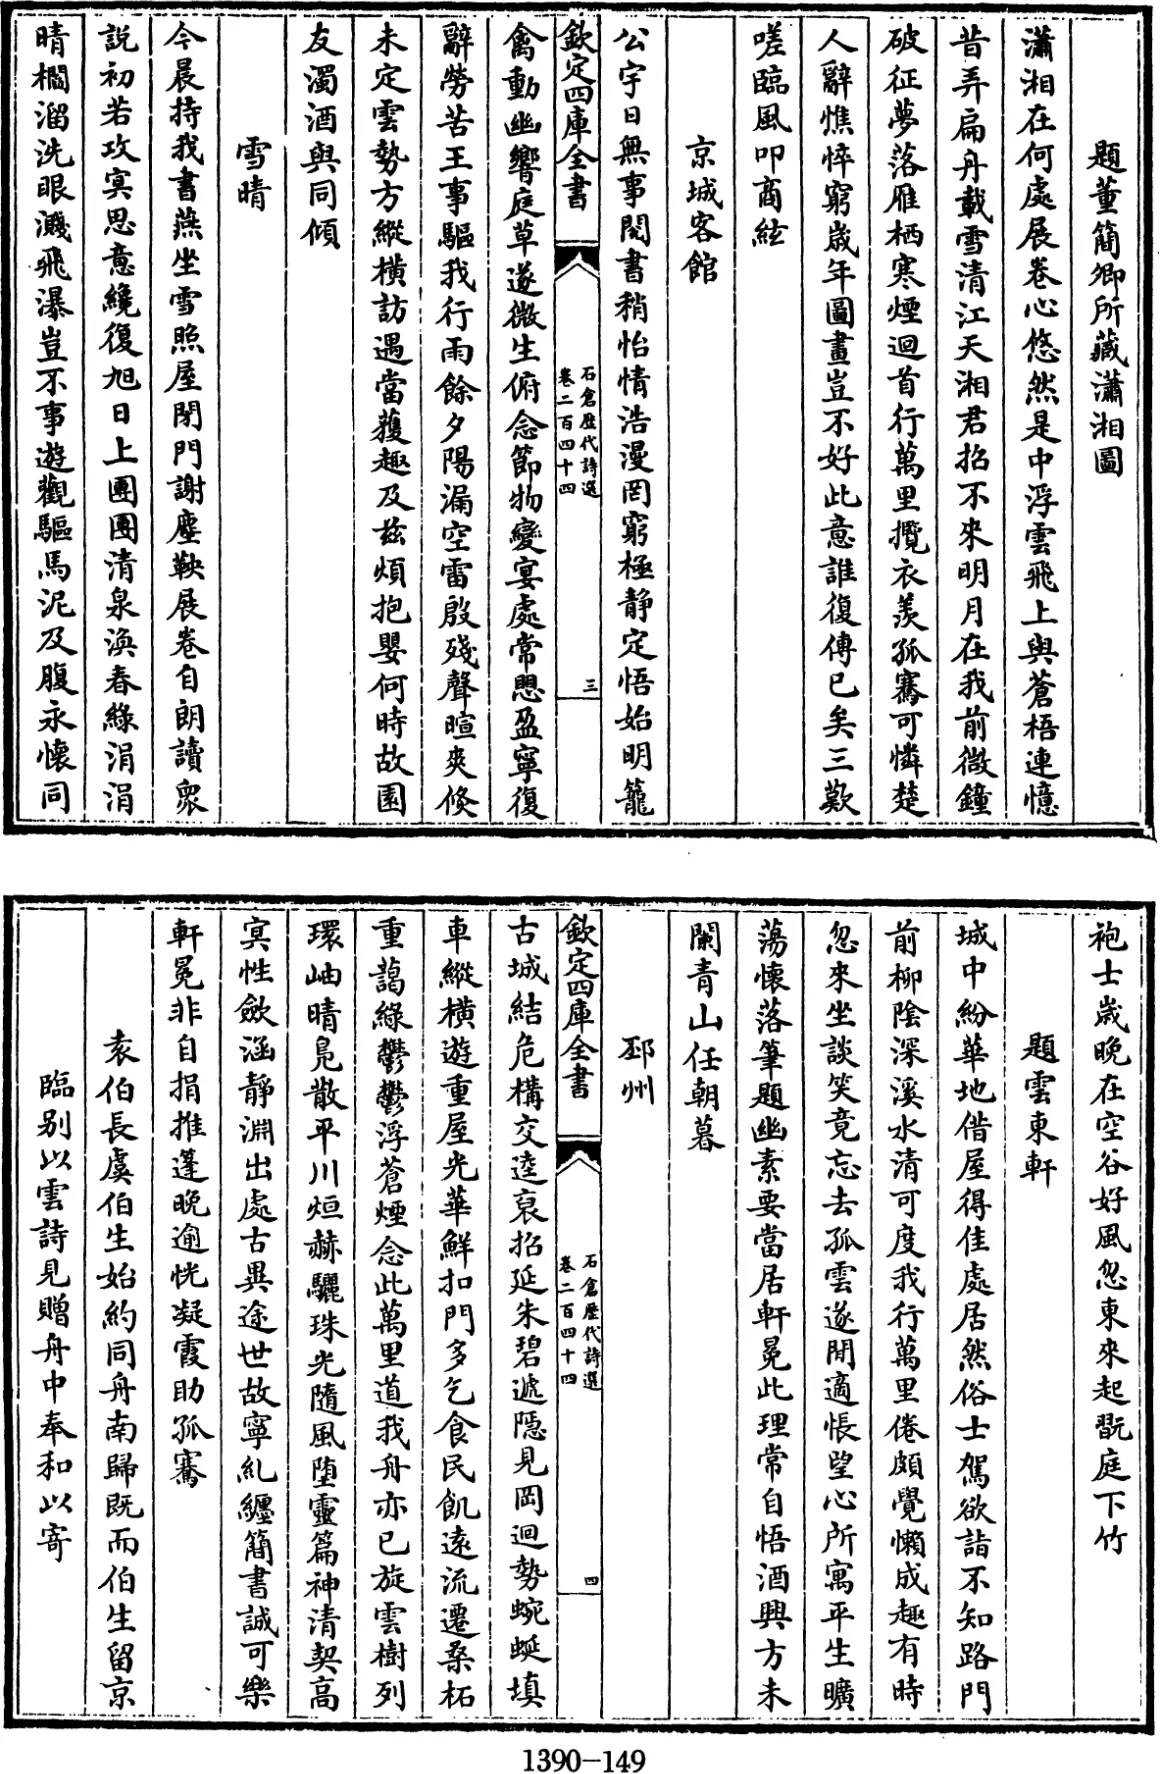 題董簡卿所藏瀟湘圖
瀟湘在何處展卷心悠然是中浮雲飛上與蒼梧連憶
昔弄扁舟載雪清江天湘君招不來明月在我前微鐘
破征夢落雁栖寒煙迴首行萬里攬衣羨孤騫可憐楚
人辭憔悴窮歲年圖畫豈不好此意誰復傳已矣三歎
嗟臨風叩商絃
京城客館
公宇日無事閱書稍怡情浩漫罔窮極静定悟始明籠
欽定四庫全書
石倉歷代詩選
卷二百四十四
三
禽動幽響庭草遂微生俯念節物變宴處常思盈寧復
辭勞苦王事驅我行雨餘夕陽漏空雷殷殘聲暄爽倏
未定雲勢方縱横訪遇當獲趣及兹煩抱嬰何時故園
友濁酒與同傾
雪晴
今晨持我書燕坐雪照屋閉門謝塵鞅展卷自朗讀衆
說初若攻寅思意纔復旭日上團團清泉渙春綠涓涓
晴檻溜洗眼濺飛瀑豈不事遊觀驅馬泥及腹永懷同
袍士歲晚在空谷好風忽東來起翫庭下竹
題雲東軒
城中紛華地借屋得佳處居然俗士駕欲詣不知路門
前柳陰深溪水清可度我行萬里倦頗覺懶成趣有時
忽來坐談笑竟忘去孤雲遂閒適悵望心所寓平生曠
蕩懷落筆題幽素要當居軒冕此理常自悟酒興方未
闌青山任朝暮
邳州
古城結危構交逵裒招延朱碧遞隱見岡迴勢蜿蜒填
欽定四庫全書
石倉歷代詩選
卷二百四十四
四
車縱横遊重屋光華鮮扣門多乞食民飢逺流遷桑柘
重藹綠鬱鬱浮蒼煙念此萬里道我舟亦已旋雲樹列
環岫晴鳧散平川烜赫驪珠光隨風墮靈篇神清契高
冥性斂涵静淵出處古異途世故寧糺纒簡書誠可樂
軒冕非自捐推蓬晚逾恍凝霞助孤騫
袁伯長虞伯生始約同舟南歸既而伯生留京
臨别以雲詩見贈舟中奉和以寄
1390-149